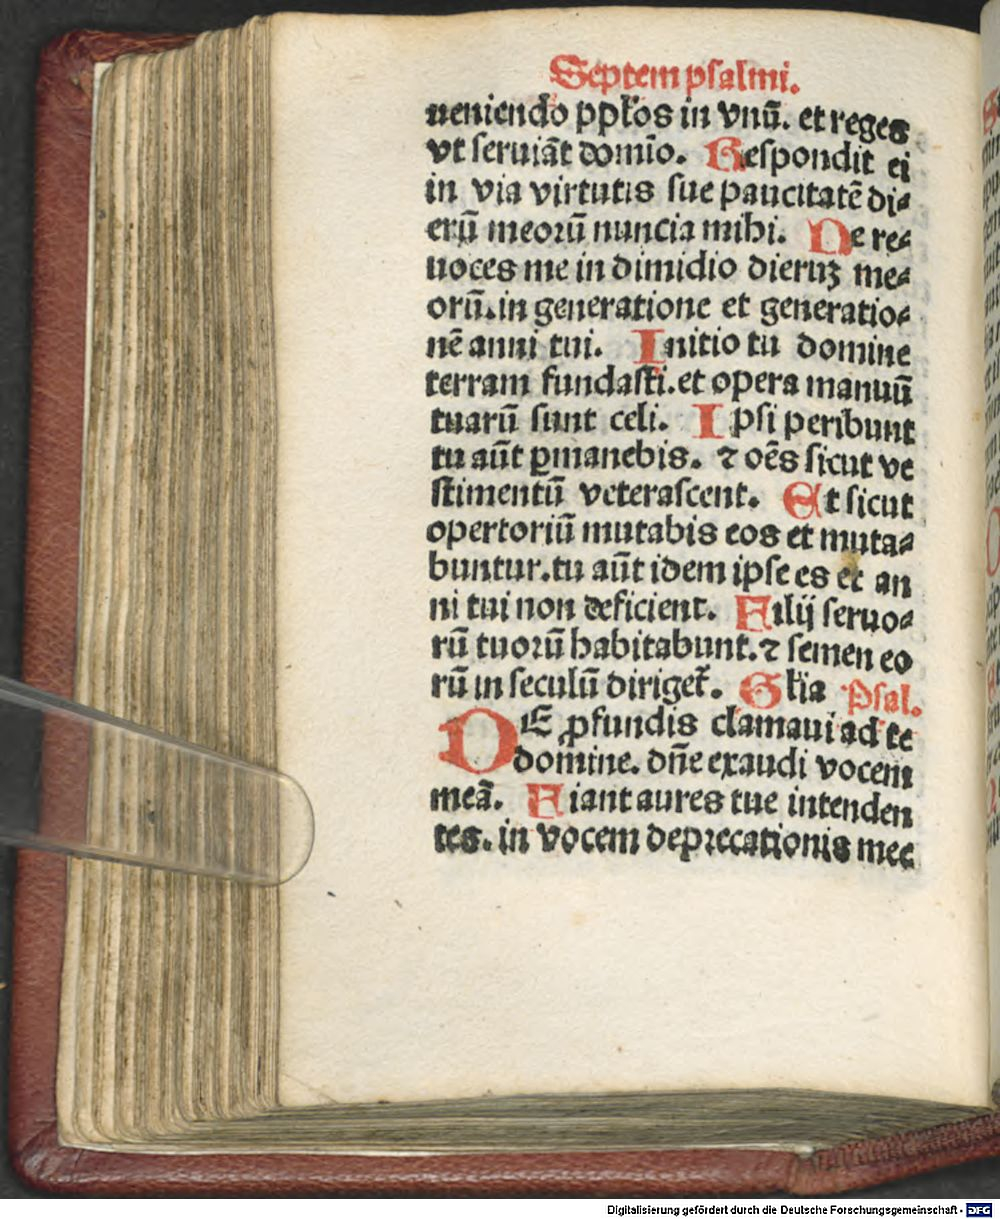 Septem psalmi.
ueniendo ppłos in vnū. et reges
vt seruiāt domīo. Respondit ei
in via virtutis sue paucitatē di⸗
erū meoꝛū nuncia mihi. Ne re⸗
uoces me in dimidio dierūꝫ me⸗
orū.in generatione et generatio⸗
nē anni tui. Initio tu domine
terram fundasti.et opera manuū
tuarū sunt celi. Ipsi peribunt
tu aūt ꝑmanebis. ⁊ oēs sicut ve
stimentū veterascent. Et sicut
opertoriū mutabis eos et muta⸗
buntur.tu aūt idem ipse es et an
ni tui non deficient. Filij seruo⸗
rū tuoꝛū habitabunt.⁊ semen eo
rū in seculū diriget̄. Głia Psal.
DE ꝓfundis clamaui ad te
domine. dn̄e exaudi vocem
meā. Fiant aures tue intenden
tes. in vocem depꝛecationis mee
Digitalisierung gefördert durch die Deutsche Forschungsgemeinschaft - DFG